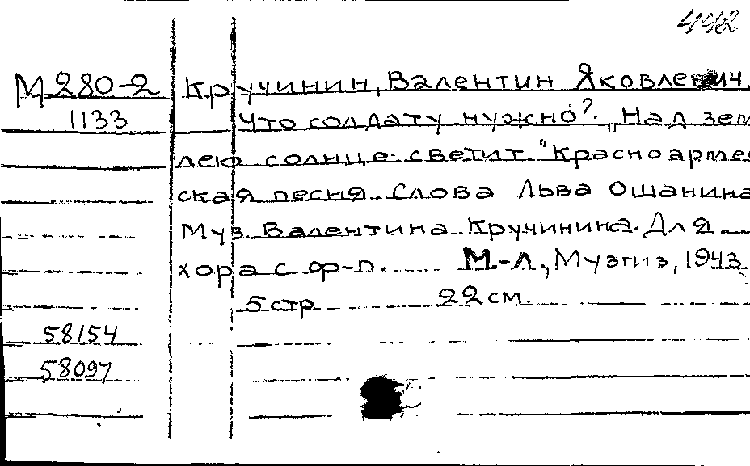 442
М 280-2 Кручинин, Валентин Яковлевич
1133 Что солдату нужно? „Над зем
лею солнце светит" Красноарме
ская песня. Слова Льва Ошанина
Муз. Валентина Кручинина. Для
хора с ф-п. М.-Л., Музгиз, 1943
5 стр 22 см
58154
58097